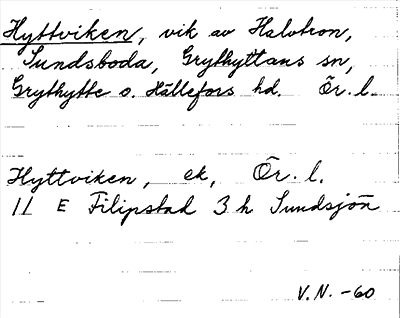 Hyttviken, vik av Halvtron,
Sundsboda, Grythyttans sn,
Grythytte o. Hällefors hd. Ör. l.
Hyttviken, ek, Ör. l.
11 E Filipstad 3 h Sundsjön
V.N. -60